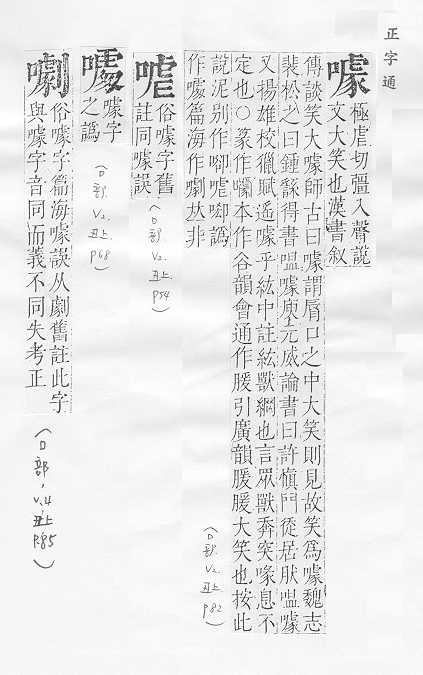 正字通
噱 極虐切彊入聲說
文大笑也漢書敘
傳談笑大噱師古曰噱謂脣口之中大笑則見故笑爲噱魏志
裴松之曰鍾繇得書嗢噱庾元威論書曰許愼門徒居肰嗢噱
又揚雄校獵賦遥噱乎紘中註紘獸網也言眾獸奔突喙息不
定也○篆作㘌本作谷韻會通作臄引廣韻臄臄大笑也按此
說泥別作㗲唬㖸譌
作噳篇海作㘌𠀤非
(口部 V2. 丑上 P82)
俗噱字舊
註同噱誤
(口部 V2 丑上 P54)
噱字
之譌
(口部 V2. 丑上 P68)
㘌 俗噱字篇海噱誤从劇舊註此字
與噱字音同而義不同失考正
(口部, V.4, 丑上 P.85)